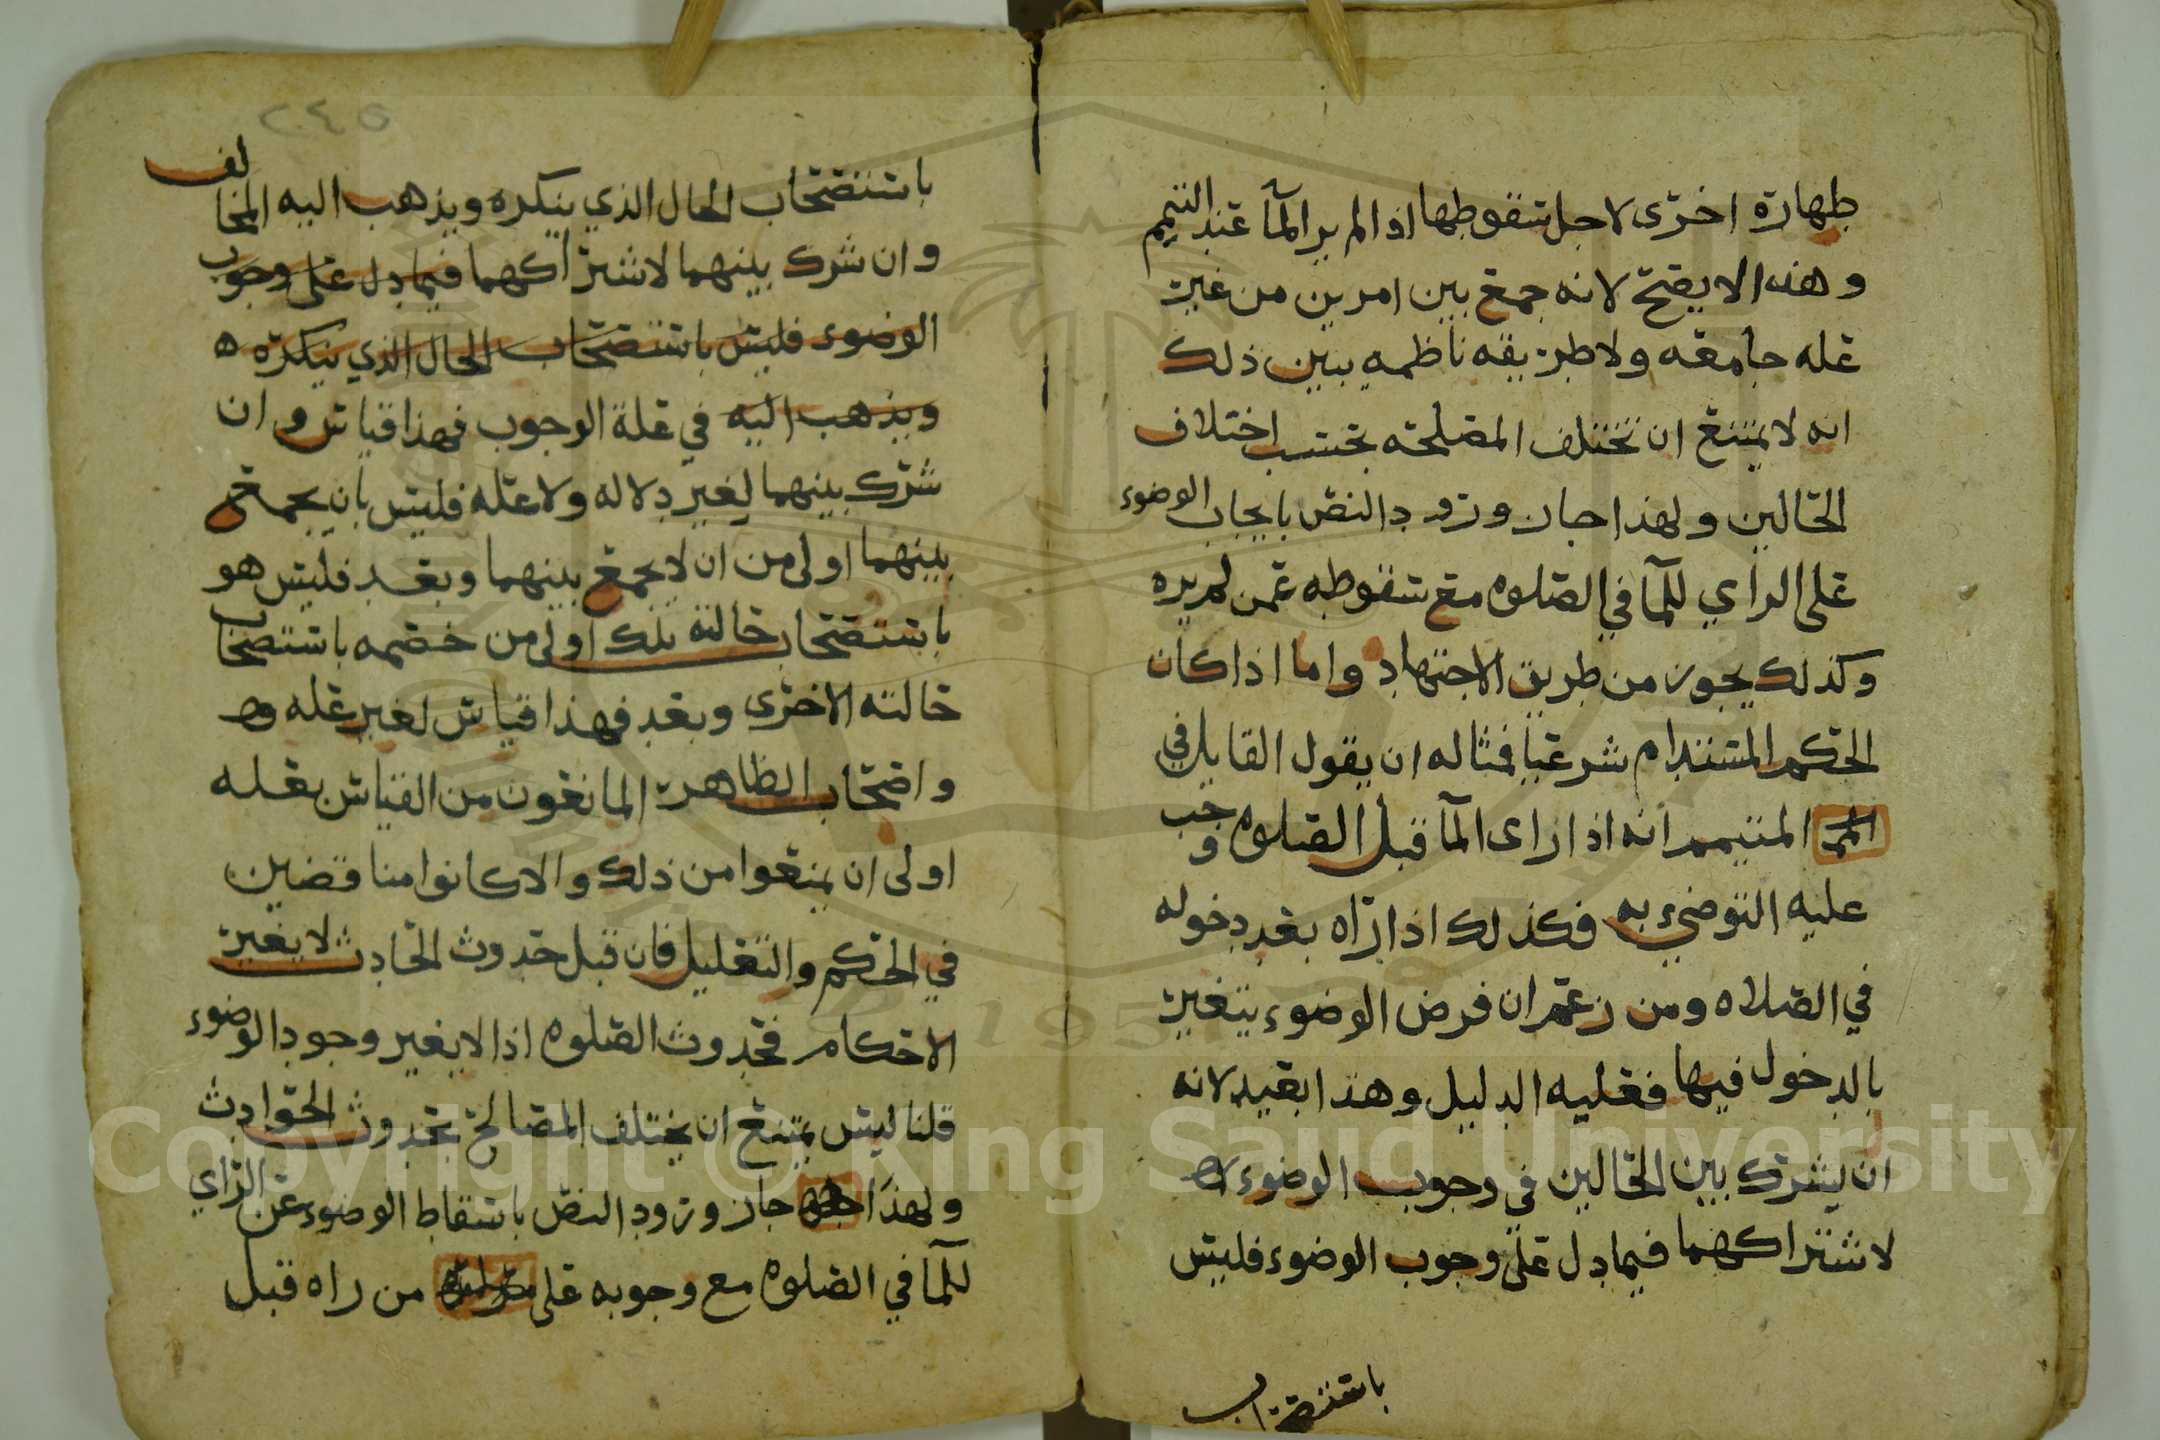 طهارة اخرى لاجل سقوطها اذا لم ير المآ عند التيمم
وهذا لا يصح لانه جمع بين امرين من غير
عله جامعه ولا طريقه ناظمه يبين ذلك
انه لا يمتنع ان تختلف المصلحه بحسب اختلاف
الحالين ولهذا جاز ورود النص بايجاب الوضوء
على الراي للمآ في الصلوه مع سقوطه عمن لم يره
وكذلك يجوز من طريق الاجتهاد واما اذا كان
الحكم المستدام شرعيا فمثاله ان يقول القايل في
المتيمم انه اذا راى المآ قبل الصلوه وجب
عليه التوضيء به فكذلك اذا راه بعد دخوله
في الصلاه ومن زعم ان فرض الوضوء يتغير
بالدخول فيها فعليه الدليل وهذا بعيد لانه
ان يشرك بين الحالين في وجوب الوضوء
لاشتراكهما فيما دل على وجوب الوضوء فليس
باستصحاب
٢٤٥
باستصحاب الحال الذي ينكره ويذهب اليه المخالف
وان شرك بينهما لاشتراكهما فيما دل على وجوب
الوضوء فليس باستصحاب الحال الذي ينكره
ويذهب اليه في علة الوجوب فهذا قياس وان
شرك بينهما لغير دلاله ولا عله فليس بان يجمع
بينهما اولى من ان لا يجمع بينهما وبعد فليس هو
باستصحاب حالته تلك اولى من خصمه باستصحاب
حالته الاخرى وبعد فهذا قياس لغير عله
واصحاب الظاهر المانعون من القياس بعله
اولى ان يمنعوا من ذلك والا كانوا مناقضين
في الحكم والتعليل فان قيل حدوث الحادث لا يغير
الاحكام فحدوث الصلوه اذا لا يغير وجود الوضوء
قلنا ليس يمتنع ان يختلف المصالح بحدوث الحوادث
ولهذا جاز ورود النص باسقاط الوضوء عن الراي
للمآ في الصلوه مع وجوبه على من راه قبل
Copyright © King Saud University
1957